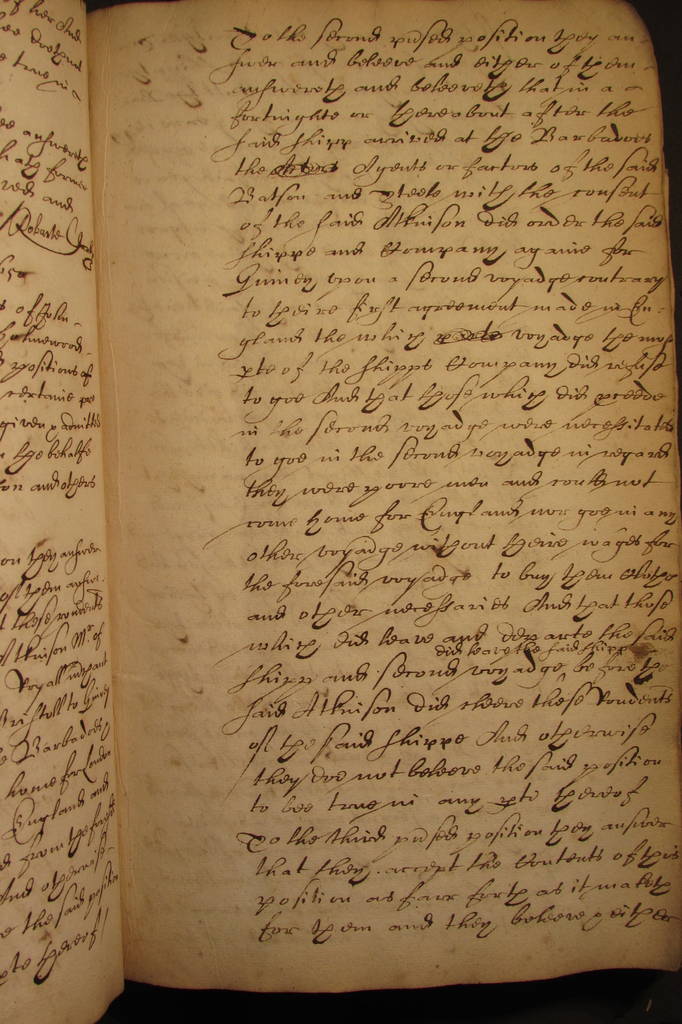 of her And
true in
answereth
hath former
and
Roberte
1650
of John
positions of
certaine
given & admitted
the behalfe
on and others
on they answer
of them answe
those rondents
Atkinson Mr of
Royall
Bristoll to Guiney
Barbadoes
home for London
England and
from the
And otherwise
the said position
pte thereof
To the second pmised position they an-
swer and beleeve and either of them
answereth and beleeveth that in a
fortnighte or thereabout after the
said shipp arrived at the Barbadoes
the Agents or factors of the said
Batson and Steele with the consent
of the said Atkinson did order the said
shippe and Company againe for
Guiney upon a second voyadge contrary
to theire first agreement made in En-
gland the which voyadge the most
pte of the shipps Company did refuse
to goe And that those which did proceede
in the second voyadge were necessitated
to goe in the second voyadge in regard
they were poore men and could not
come home for England nor goe in any
other voyadge without theire wages for
the foresaid voyadge to buy them clothes
and other necessaries And that those
which did leave and departe the said
did leave the said shipp
shipp and second voyadge before the
said Atkinson did cleere these rondents
of the said shippe And otherwise
they doe not beleeve the said position
to bee true in any pte thereof
To the third pmised position they answer
that they accept the Contents of this
position as farr forth as it maketh
for them and they beleeve & either